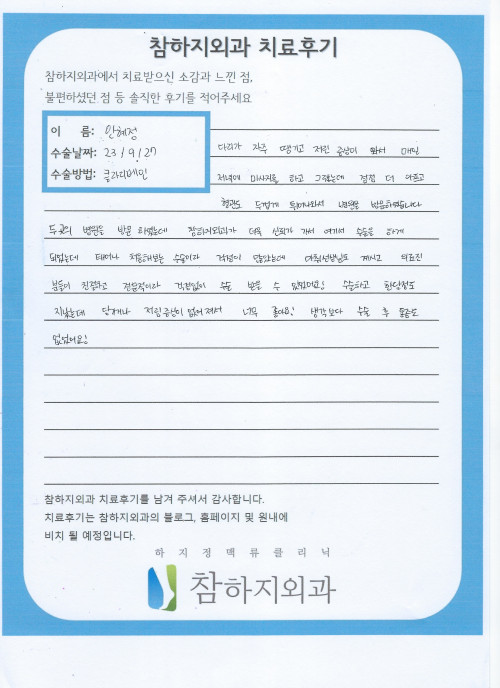 참하지외과 치료후기
참하지외과에서 치료받으신 소감과 느낀 점,
불편하셨던 점 등 솔직한 후기를 적어주세요
이 름: 안혜정
수술날짜: 23/9/27
수술방법: 클라리베인
다리가 자주 땡기고 저린 증상이 와서 매일
저녁에 마사지를 하고 그랬는데 점점 더 아프고
혈관도 두껍게 튀어나와서 병원을 방문하였습니다
두곳의 병원을 방문 하였는데 참하지외과가 더욱 신뢰가 가서 여기서 수술을 하게
되었는데 태어나 처음해보는 수술이라 걱정이 많았는데 마취선생님도 계시고 의료진
분들이 친절하고 전문적이라 걱정없이 수술 받을 수 있었어요! 수술하고 한달정도
지났는데 당기거나 저린증상이 없어져서 너무 좋아요! 생각보다 수술 후 통증도
없었어요!
참하지외과 치료후기를 남겨 주셔서 감사합니다.
치료후기는 참하지외과의 블로그, 홈페이지 및 원내에
비치 될 예정입니다.
하지정맥류클리닉
참하지외과